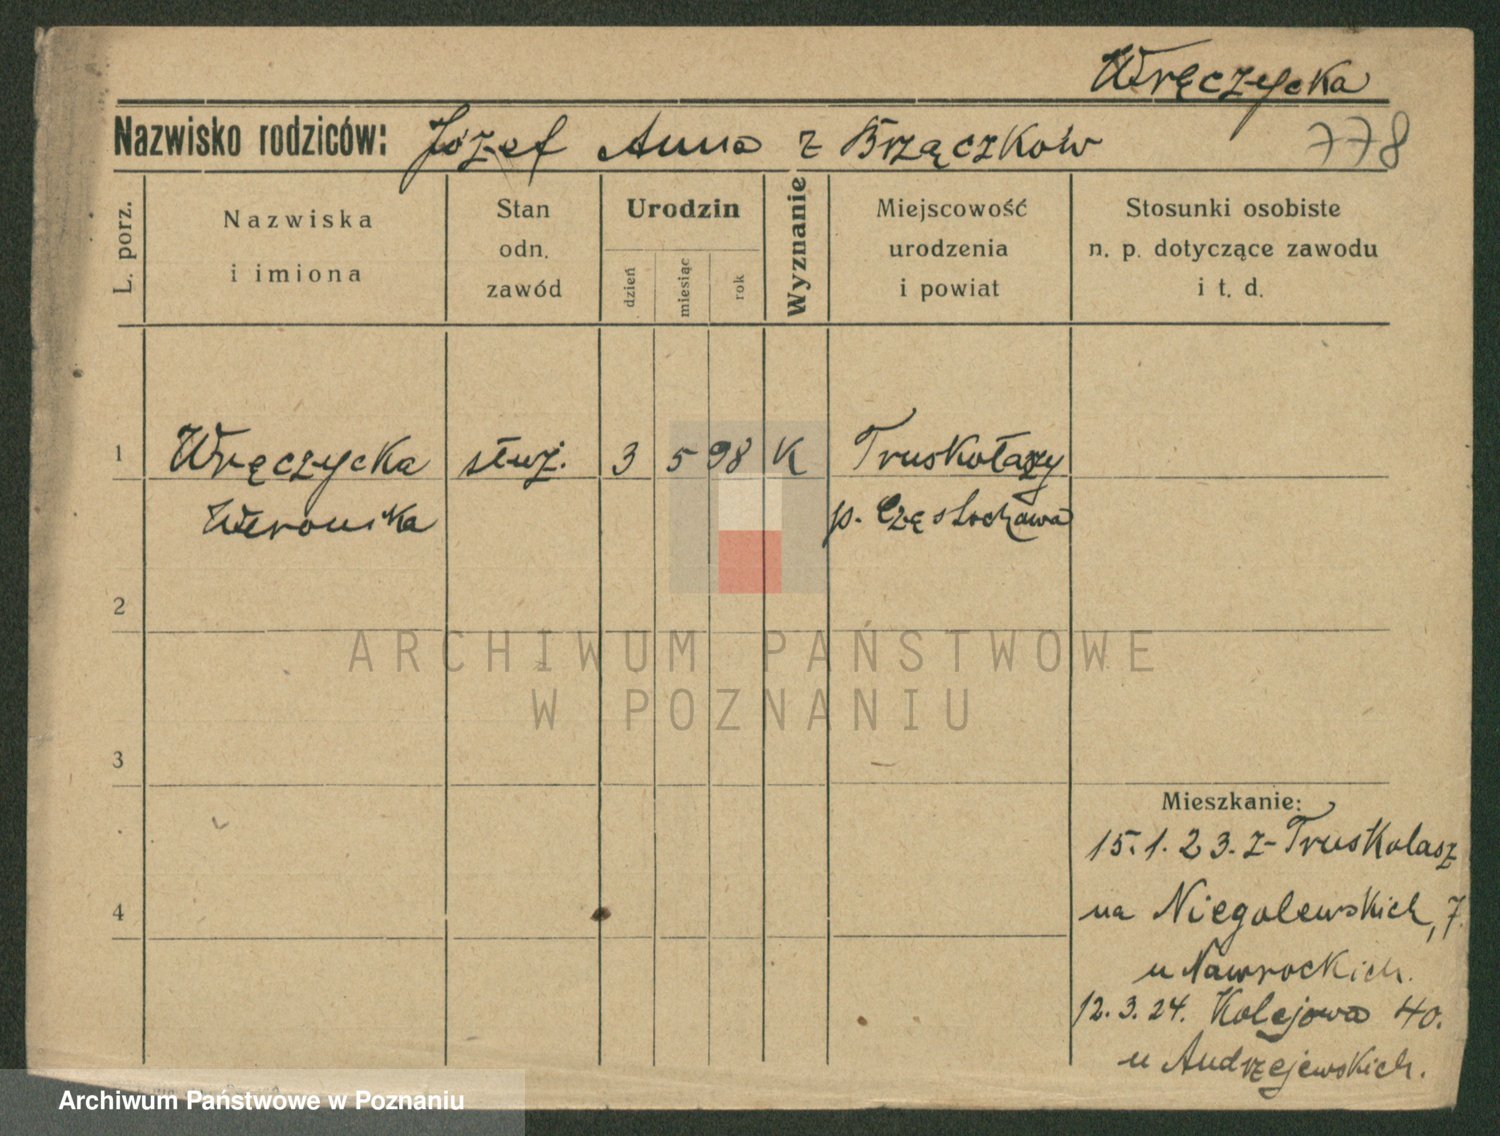 Wręczycka
Nazwisko rodziców: Józef Anna z Brzączków
778
L. porz.
Nazwiska
i imiona
Stan
odn.
zawód
Urodzin
dzień
miesiąc
rok
Wyznanie
Miejscowość
urodzenia
i powiat
Stosunki osobiste
n. p. dotyczące zawodu
i t. d.
1 Wręczycka służ. 3 5 98 K Truskołazy
Weronika p. Częstochowa
2
ARCHIWUM PAŃSTWOWE
W POZNANIU
3
Mieszkanie:
15.1.23. z Truskolasz
na Niegolewskich, 7.
4
u Nawrockich.
12.3.24. Kolejowa 40.
u Andrzejewskich.
Archiwum Państwowe w Poznaniu